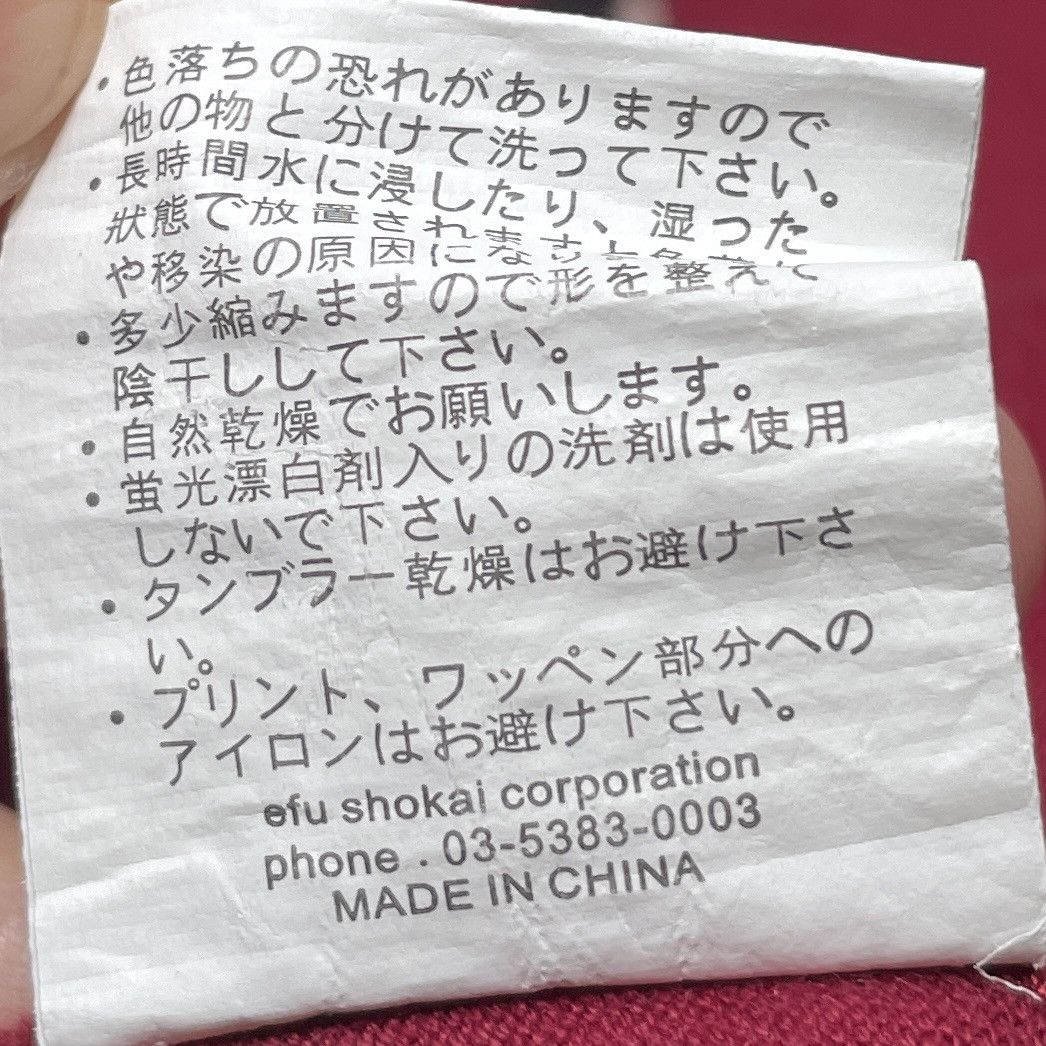 ・色落ちの恐れがありますので
他の物と分けて洗って下さい。
・長時間水に浸したり、湿った
狀態で放置されますと色落
や移染の原因に
・多少縮みますので形を整えて
陰干しして下さい。
・自然乾燥でお願いします。
・蛍光漂白剤入りの洗剤は使用
しないで下さい。
・タンブラー乾燥はお避け下さ
い。
・プリント、ワッペン部分への
アイロンはお避け下さい。
efu shokai corporation
phone . 03-5383-0003
MADE IN CHINA